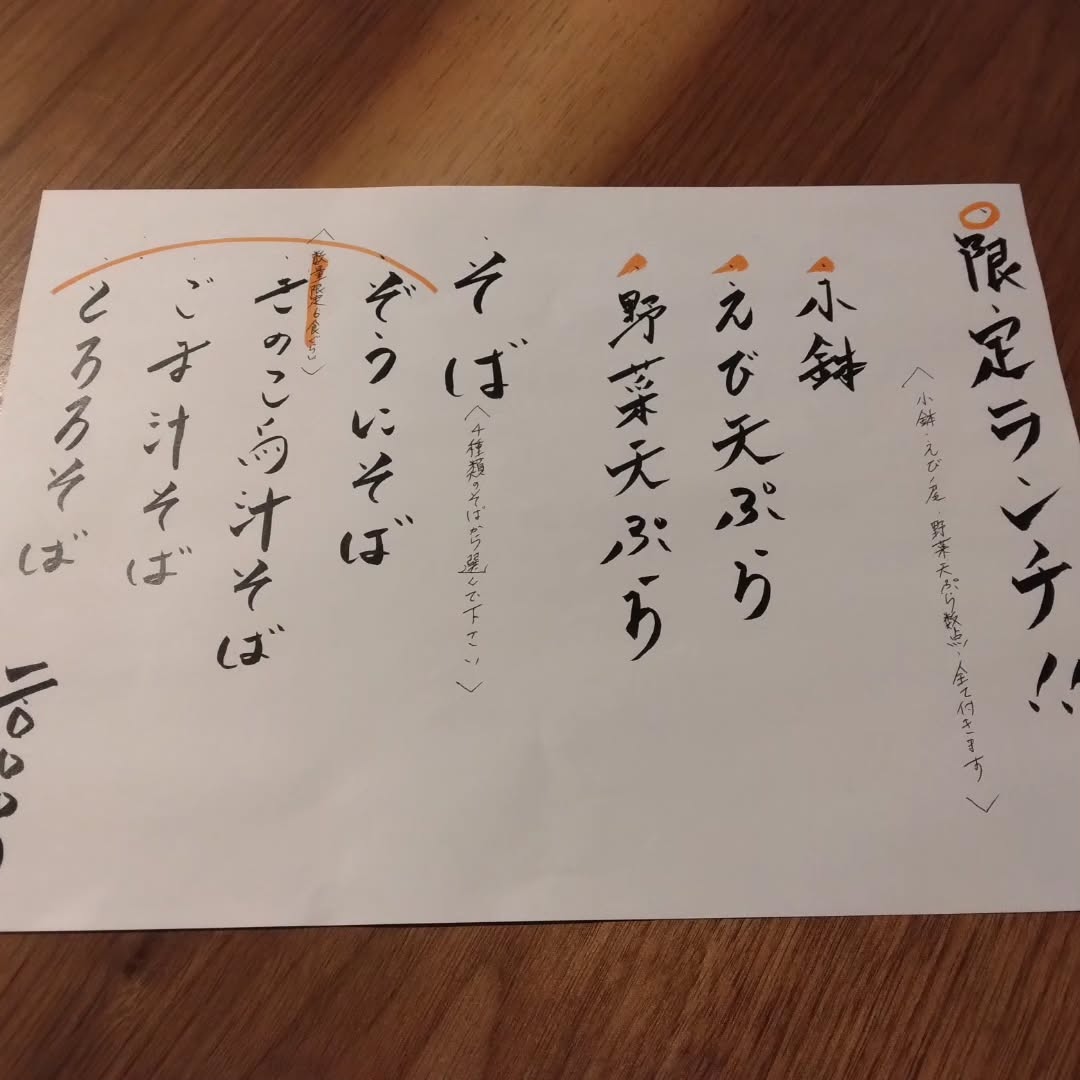 限定ランチ!!
〈小鉢・えび天・野菜天ぷら数点、全て付きます〉
小鉢
えび天ぷら
野菜天ぷら
そば
〈4種類のそばから選んで下さい〉
ぞうにそば
〈数量限定6食ぐらい〉
きのこ汁そば
ごま汁そば
とろろそば
二〇〇〇